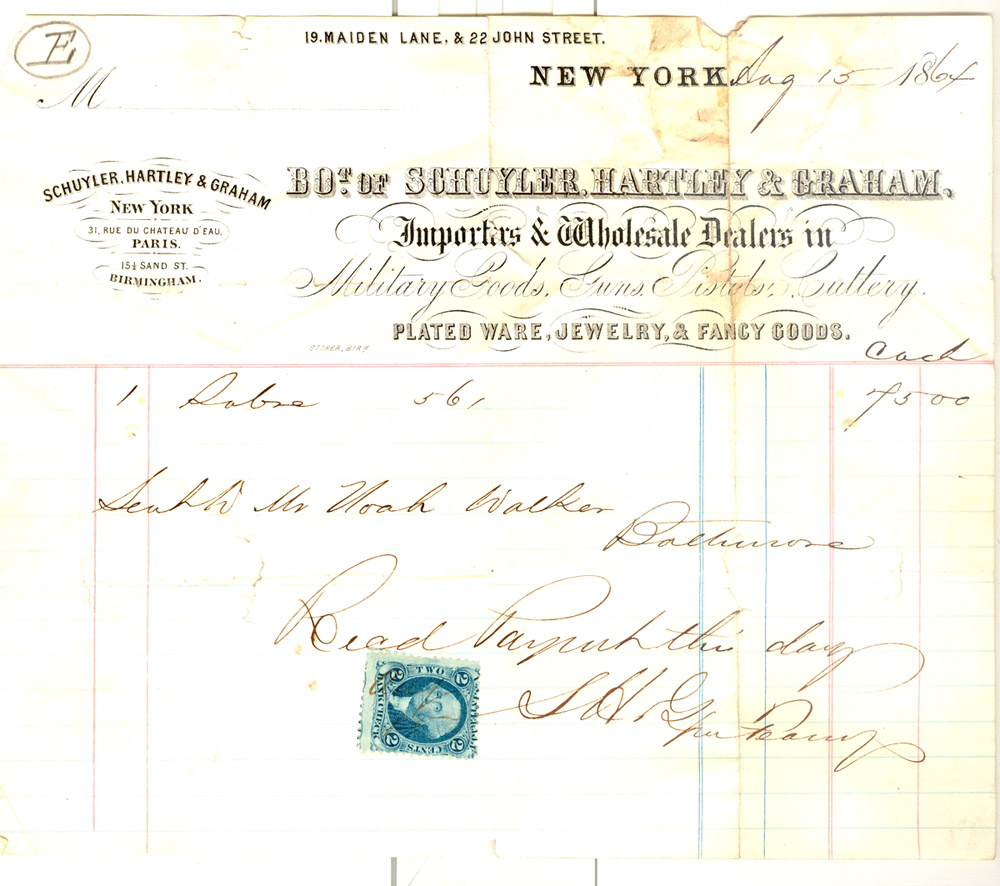 E
19. MAIDEN LANE, & 22 JOHN STREET.
NEW YORK Aug 15 1864
M
SCHUYLER, HARTLEY & GRAHAM
NEW YORK
31, RUE DU CHATEAU D'EAU,
PARIS.
15½ SAND ST.
BIRMINGHAM.
BOT. OF SCHUYLER, HARTLEY & GRAHAM,
Importers & Wholesale Dealers in
Military Goods, Guns, Pistols, Cuttery.
PLATED WARE, JEWELRY, & FANCY GOODS.
1 Sabre 561 7500
Mr Noah Walker
Baltimore
Recd Payment this day
S H & G
TWO
CENTS
BANK CHECK
2 2 2 2